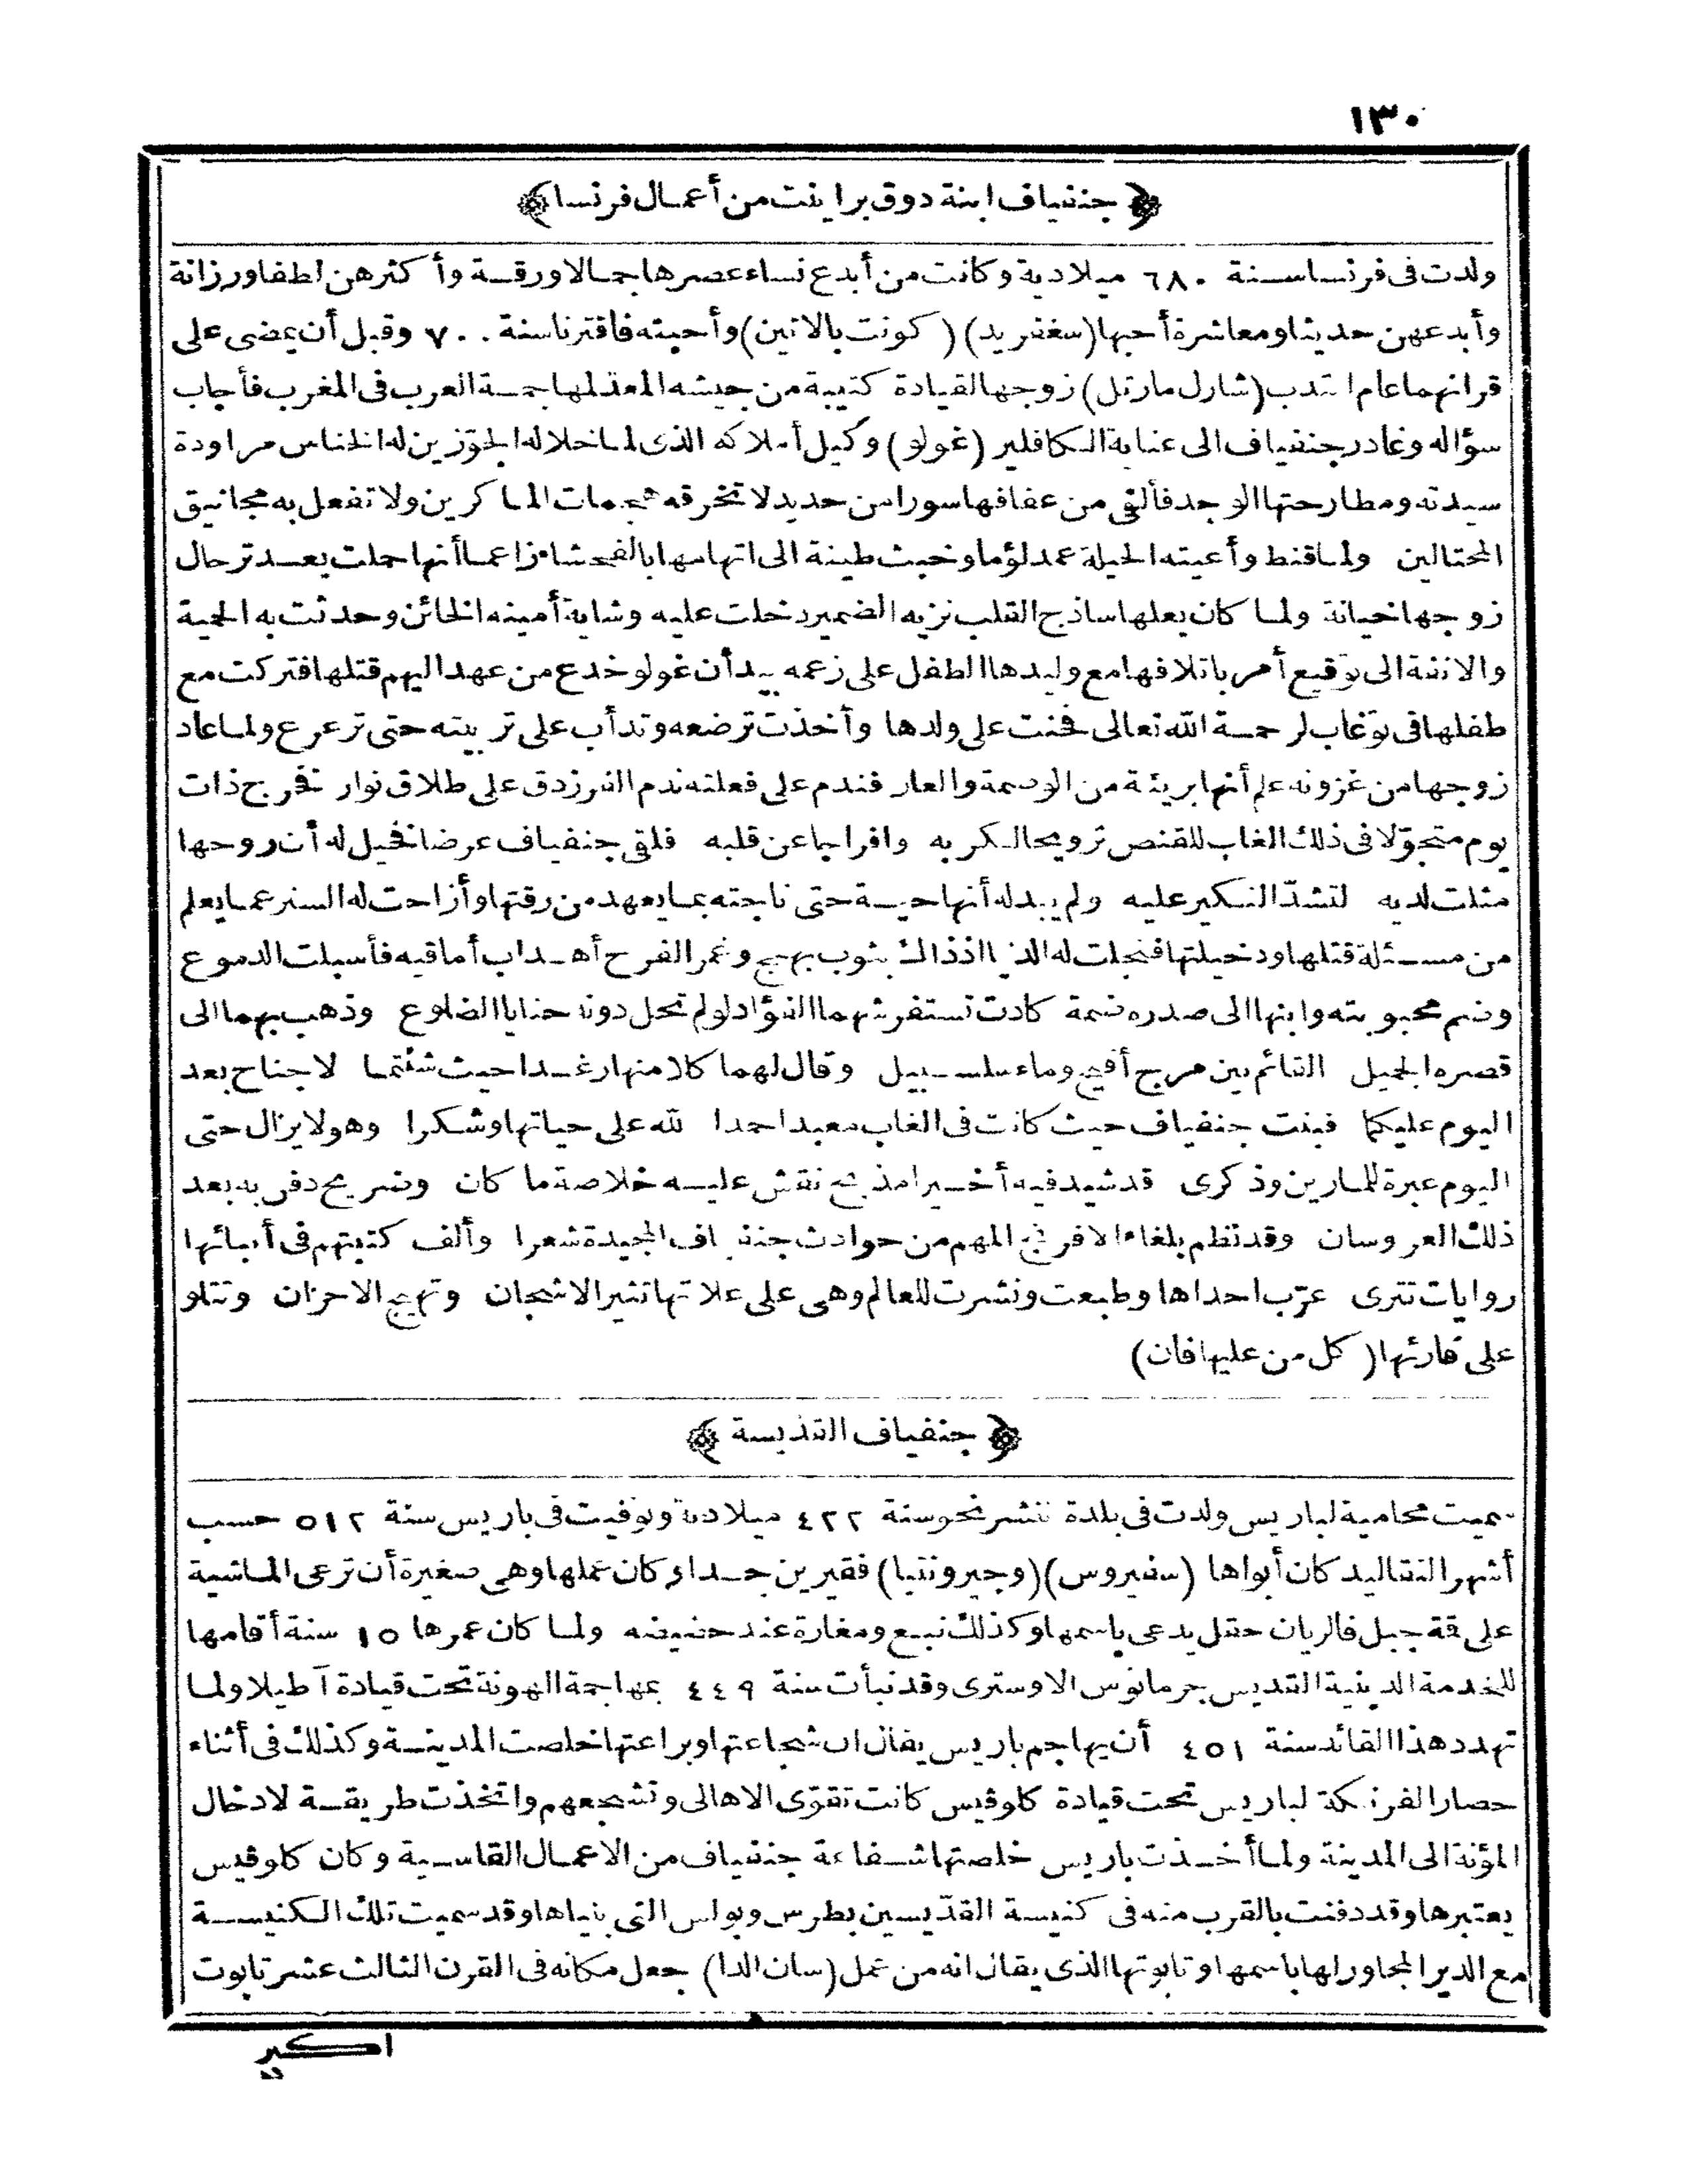 ١٣٠
﴿جنفياف ابنة دوق براينت من أعمال فرنسا﴾
ولدت فى فرنسا سنة ٦٨٠ ميلادية وكانت من أبدع نساء عصرها جمالا ورقة وأكثرهن لطفا ورزانة
وأبدعهن حديثا ومعاشرة أحبها (سغفريد) (كونت بالاتين) وأحبته فاقترنا سنة ٧٠٠ وقبل أن يمضى على
قرانهما عام انتدب (شارل مارتل) زوجها لقيادة كتيبة من جيشه المعد لمهاجمة العرب فى المغرب فأجاب
سؤاله وغادر جنفياف الى عناية الكافلير (غولو) وكيل أملاكه الذى لما خلا له الجوّ زين له الخناس مراودة
سيدته ومطارحتها الوجد فألفى من عفافها سورا من حديد لا تخرقه هجمات الماكرين ولا تفعل به مجانيق
المحتالين ولما قنط وأعيته الحيلة عمد لؤما وخبث طينة الى اتهامها بالفحشاء زاعما أنها حملت بعد ترحال
زوجها خيانة ولما كان بعلها ساذج القلب نزيه الضمير دخلت عليه وشاية أمينه الخائن وحدثت به الحمية
والانفة الى توقيع أمر باتلافها مع وليدها الطفل على زعمه بيد أن غولو خدع من عهد اليهم قتلها فتركت مع
طفلها فى بوغاب لرحمة الله تعالى فحنت على ولدها وأخذت ترضعه وتدأب على تربيته حتى ترعرع ولما عاد
زوجها من غزونه علم أنها بريئة من الوصمة والعار فندم على فعلته ندم الفرزدق على طلاق نوار فخرج ذات
يوم متجوّلا فى ذلك الغاب للقنص ترويحا لكربه وافراجا عن قلبه فلقى جنفياف عرضا فخيل له أن روحها
مثلت لديه لتشدّ النكير عليه ولم يبد له أنها حية حتى ناجته بما يعهد من رقتها وأزاحت له الستر عما يعلم
من مسئلة قتلها ودخيلتها فتجلت له الدنيا اذ ذاك بثوب بهيج وغمر الفرح أهداب أماقيه فأسبلت الدموع
وضم محبوبته وابنها الى صدره ضمة كادت تستفرشهما الفؤاد لو لم تحل دونه حنايا الضلوع وذهب بهما الى
قصره الجميل القائم بين مرج أفيح وماء سلسبيل وقال لهما كلا منها رغدا حيث شئتما لا جناح بعد
اليوم عليكما فبنت جنفياف حيث كانت فى الغاب معبدا حمدا لله على حياتها وشكرا وهو لا يزال حتى
اليوم عبرة للمارين وذكرى قد شيد فيه أخيرا مذبح نقش عليه خلاصة ما كان وضريح دفن به بعد
ذلك العروسان وقد نظم بلغاء الافرنج المهم من حوادث جنفياف المجيدة شعرا وألف كتبتهم فى أنبائها
روايات تترى عرّب احداها وطبعت ونشرت للعالم وهى على علاتها تثير الاشجان وتهيج الاحزان وتتلو
على قارئها (كل من عليها فان)
﴿جنفياف القديسة﴾
سميت محامية لباريس ولدت فى بلدة ننتر نحو سنة ٤٢٢ ميلادية وتوفيت فى باريس سنة ٥١٢ حسب
أشهر التقاليد كان أبواها (سفيروس) (وجيرونتيا) فقيرين جدا وكان عملها وهى صغيرة أن ترعى الماشية
على قمة جبل فالريان حقل يدعى باسمها وكذلك نبع ومغارة عند حضيضه ولما كان عمرها ١٥ سنة أقامها
للخدمة الدينية القديس جرمانوس الاوسترى وقد نبأت سنة ٤٤٩ بمهاجمة الهونة تحت قيادة آطيلا ولما
تهدد هذا القائد سنة ٤٥١ أن يهاجم باريس يقال ان شجاعتها وبراعتها خلصت المدينة وكذلك فى أثناء
حصار الفرنكة لباريس تحت قيادة كلوفيس كانت تقوى الاهالى وتشجعهم واتخذت طريقة لادخال
المؤنة الى المدينة ولما أخذت باريس خلصتها شفاعة جنفياف من الاعمال القاسية وكان كلوفيس
يعتبرها وقد دفنت بالقرب منه فى كنيسة القدّيسين بطرس وبولس التى بنياها وقد سميت تلك الكنيسة
مع الدير المجاور لها باسمها وتابوتها الذى يقال انه من عمل (سان الدا) جعل مكانه فى القرن الثالث عشر تابوت
اكبر